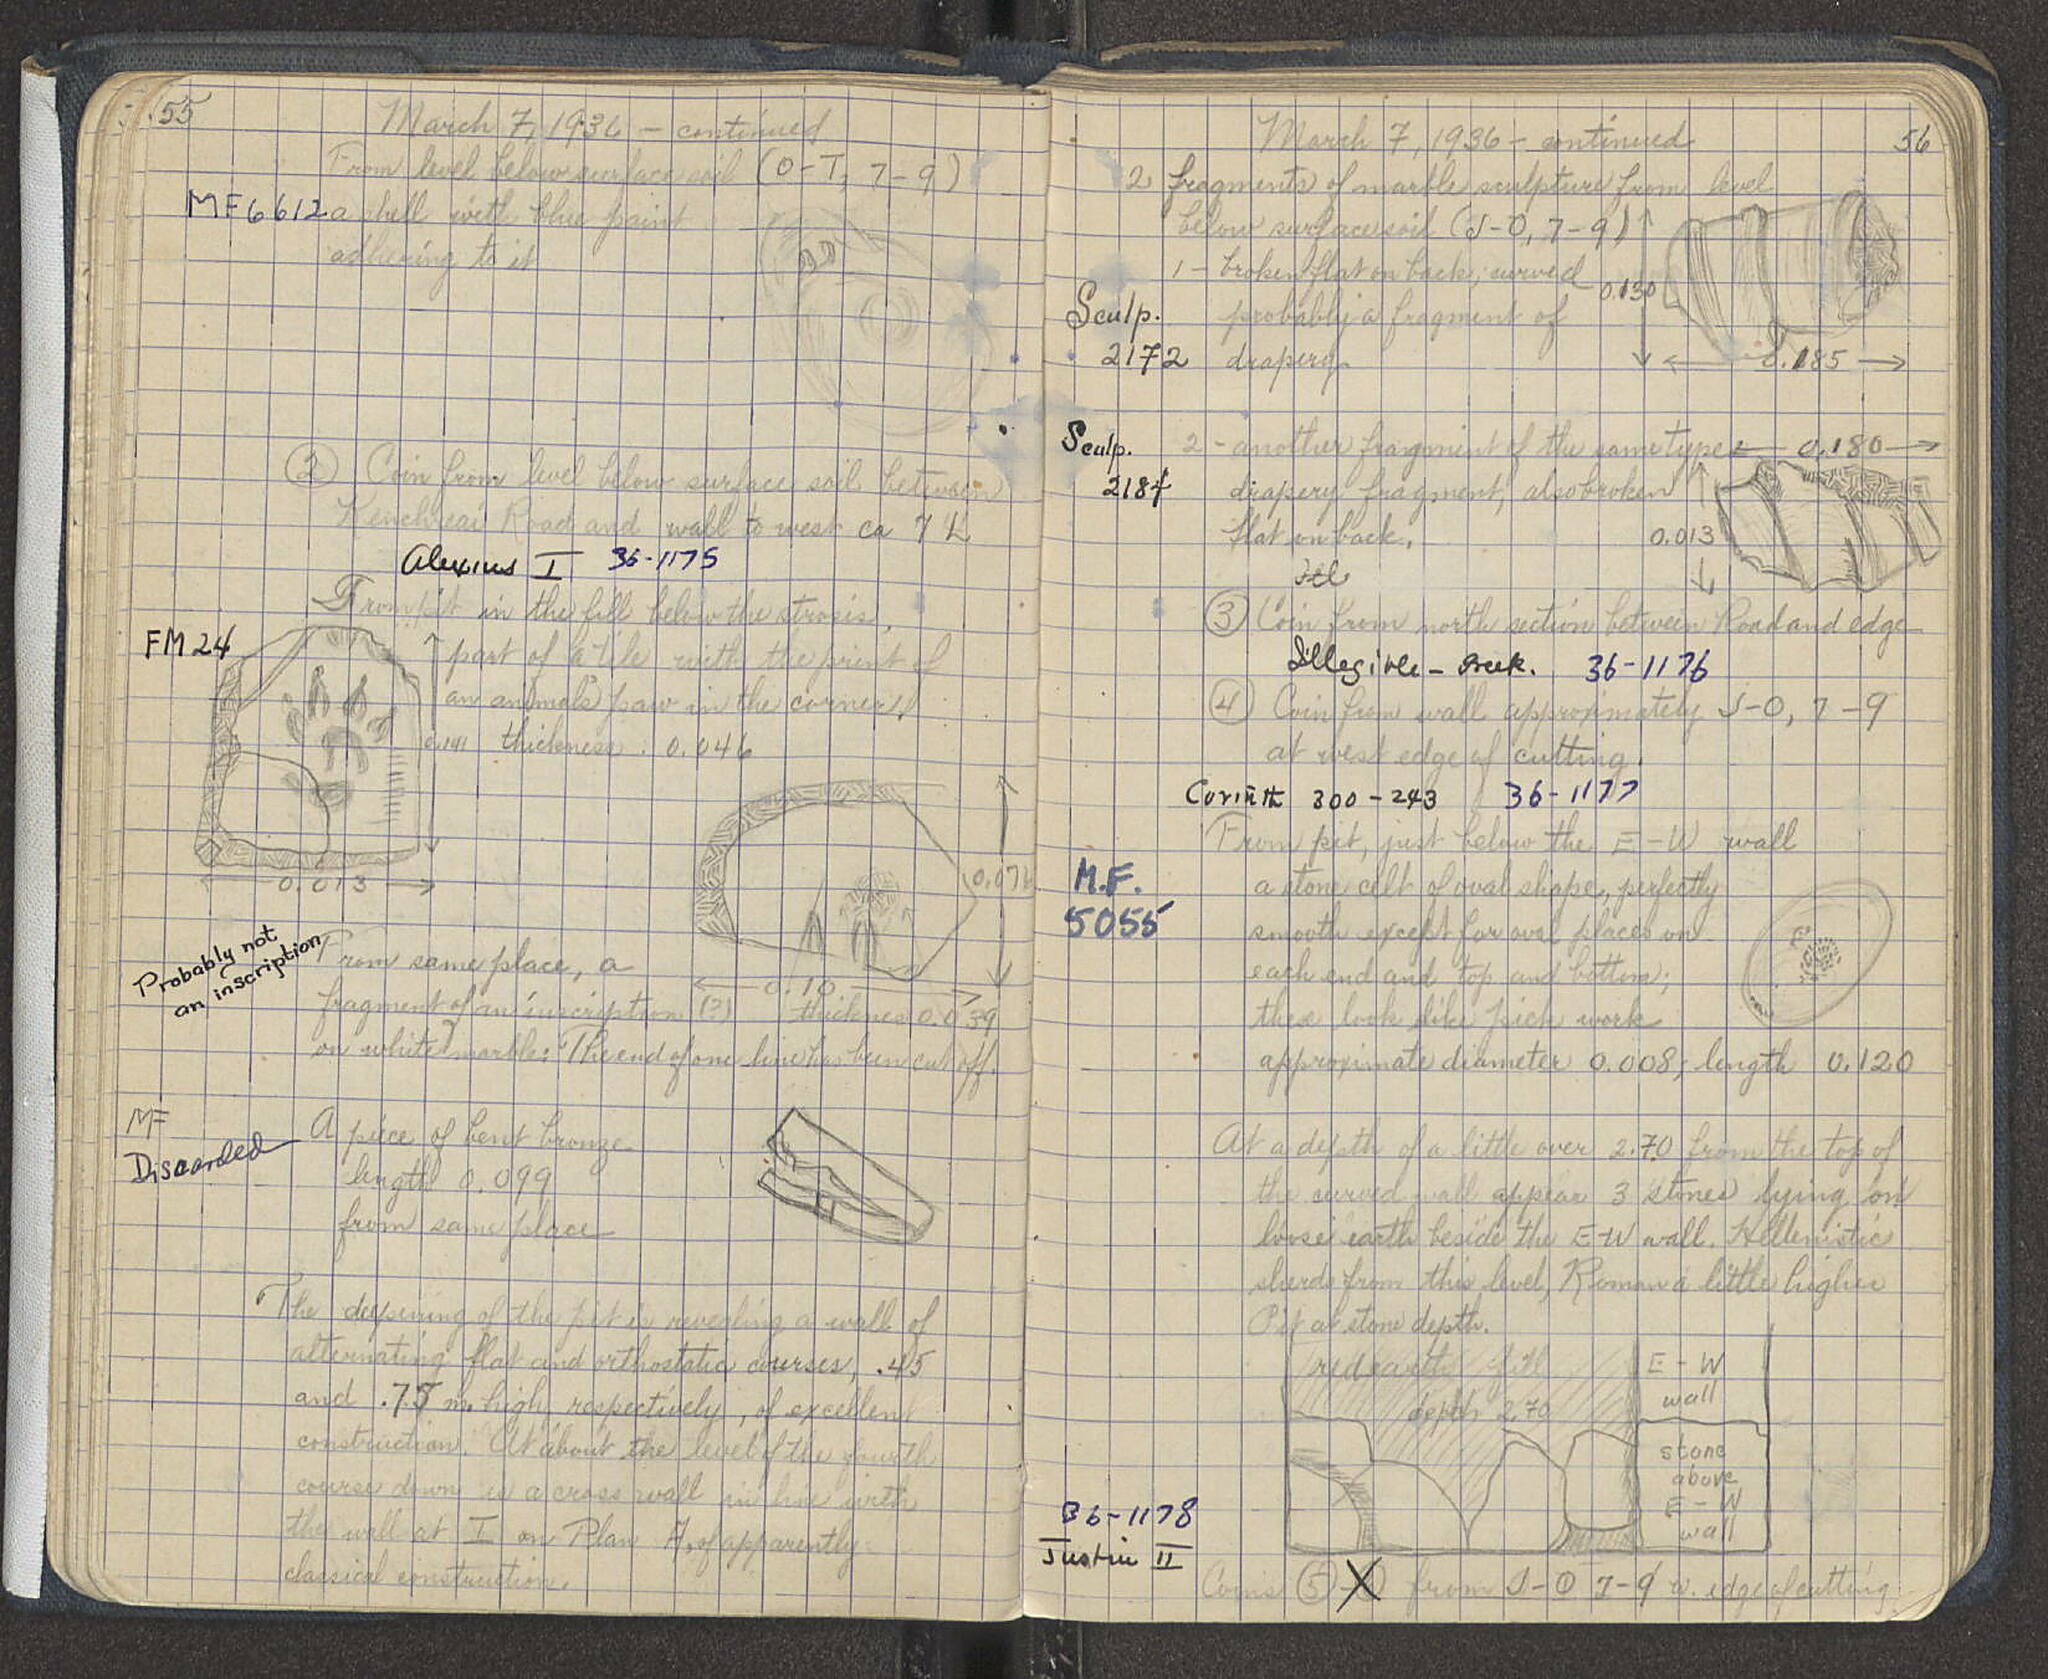 55
March 7, 1936 – continued
From level below surface soil (O-T, 7-9)
MF6612 a shell with blue paint
adhering to it
② Coin from level below surface soil between
Kenchreai Road and wall to west ca 7 L
Alexius I 36-1175
From pit in the fill below the strosis,
FM 24
part of a tile with the print of
an animal's paw in the corner,
thickness: 0.046
0.013
0.10
thicknes 0.039
Probably not
an inscription
From same place, a
fragment of an inscription (?)
on white marble: The end of one line has been cut off.
MF
Discarded
A piece of bent bronze
length 0.099
from same place
The deepening of the pit is revealing a wall of
alternating flat and orthostatic courses, .45
and .75 m. high, respectively, of excellent
construction. At about the level of the fourth
course down is a cross wall in line with
the wall at I on Plan A, of apparently
classical construction.
March 7, 1936 – continued
56
2 fragments of marble sculpture from level
below surface soil (J-O, 7-9)
1 – broken flat on back; curved
0.130
Sculp.
2172
probably a fragment of
drapery
0.185
Sculp.
2184
2 – another fragment of the same type
0.180
drapery fragment, also broken
flat on back.
0.013
③ Coin from north section between Road and edge
Illegible – Greek. 36-1176
④ Coin from wall approximately J-O, 7-9
at west edge of cutting.
Corinth 300-243 36-1177
From pit, just below the E-W wall
M.F.
5055
a stone celt of oval shape, perfectly
smooth except for oval places on
each end and top and bottom;
these look like pick work
approximate diameter 0.008; length 0.120
At a depth of a little over 2.70 from the top of
the curved wall appear 3 stones lying on
loose earth beside the E-W wall. Hellenistic
sherds from this level, Roman a little higher
Pit at stone depth.
red earth fill
depth 2.70
E-W
wall
stone
above
E-W
wall
36-1178
Justin II
Coins ⑤ from J-O 7-9 w. edge of cutting